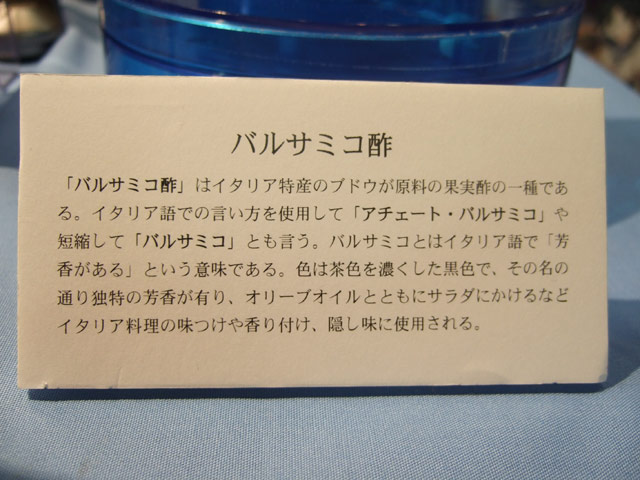 バルサミコ酢
「バルサミコ酢」はイタリア特産のブドウが原料の果実酢の一種であ
る。イタリア語での言い方を使用して「アチェート・バルサミコ」や
短縮して「バルサミコ」とも言う。バルサミコとはイタリア語で「芳
香がある」という意味である。色は茶色を濃くした黒色で、その名の
通り独特の芳香が有り、オリーブオイルとともにサラダにかけるなど
イタリア料理の味つけや香り付け、隠し味に使用される。